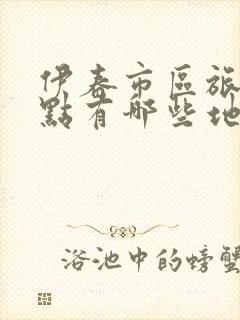 伊春市區旅
點有那些地
浴池中的螃蟹